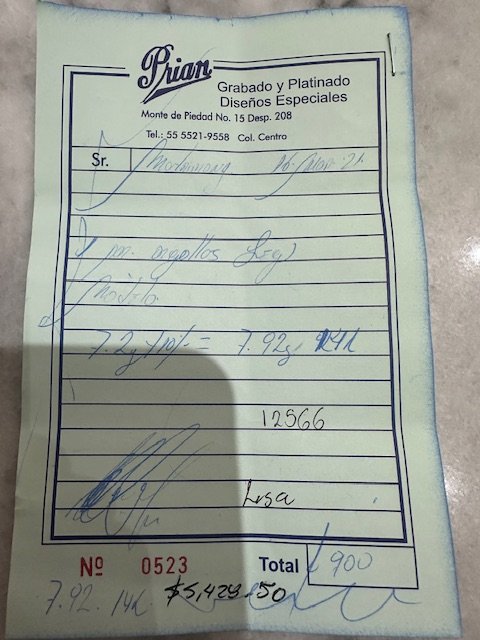 Prian
Grabado y Platinado
Diseños Especiales
Monte de Piedad No. 15 Desp. 208
Tel.: 55 5521-9558 Col. Centro
Sr.
Modelo
7.2g + 10% = 7.92g 14k
12566
Lisa
Nº 0523 Total 900
7.92. 14k $5,429.50